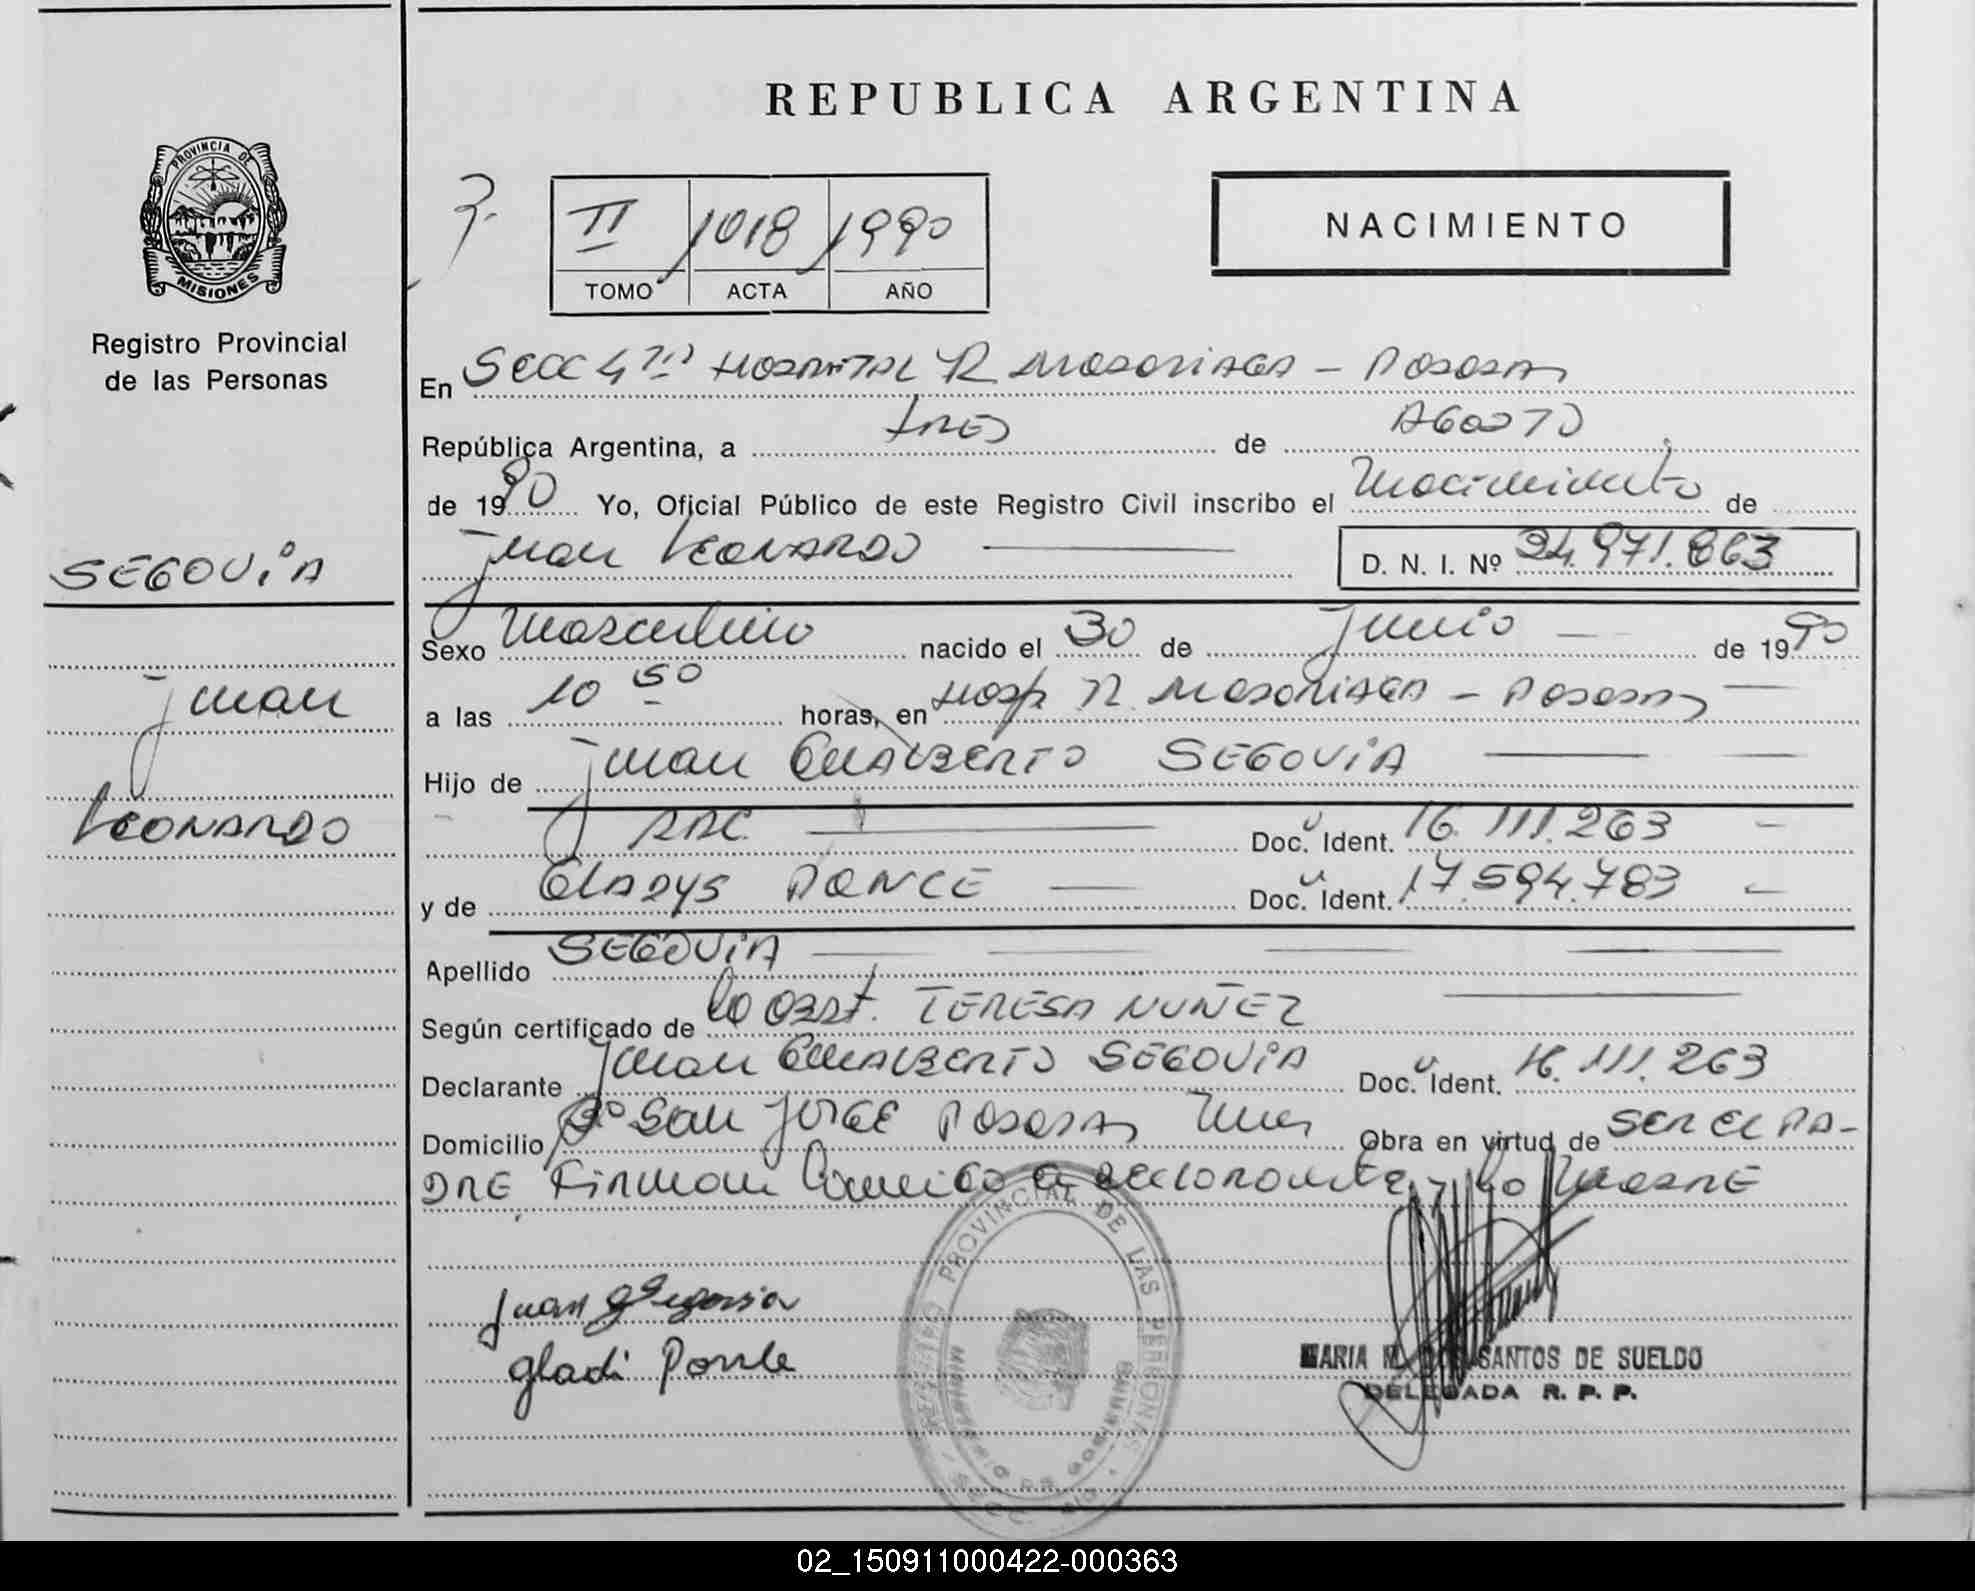 REPUBLICA ARGENTINA
PROVINCIA DE
MISIONES
Registro Provincial
de las Personas
II 1018 1990
TOMO ACTA AÑO
NACIMIENTO
En Secc 4ta Hospital R Madariaga - Posadas
República Argentina, a tres de Agosto
de 1990 Yo, Oficial Público de este Registro Civil inscribo el Nacimiento de
Juan Leonardo
D. N. I. Nº 34.971.863
SEGOVIA
Juan
Leonardo
Sexo Masculino nacido el 30 de Junio de 1990
a las 10 50 horas, en Hosp R. Madariaga - Posadas
Hijo de Juan Gualberto SEGOVIA
ARG Doc. Ident. 16.111.263
y de Gladys PONCE Doc. Ident. 17.594.783
Apellido SEGOVIA
Según certificado de la Obst. TERESA NUÑEZ
Declarante Juan Gualberto SEGOVIA Doc. Ident. 16.111.263
Domicilio Bº San Jorge Posadas Mnes Obra en virtud de ser el pa-
dre Firman conmigo el declarante y la Madre
Juan G Segovia
gladi Ponse
REGISTRO PROVINCIAL DE LAS PERSONAS
MINISTERIO DE GOBIERNO
MARIA M. DOS SANTOS DE SUELDO
DELEGADA R. P. P.
02_150911000422-000363